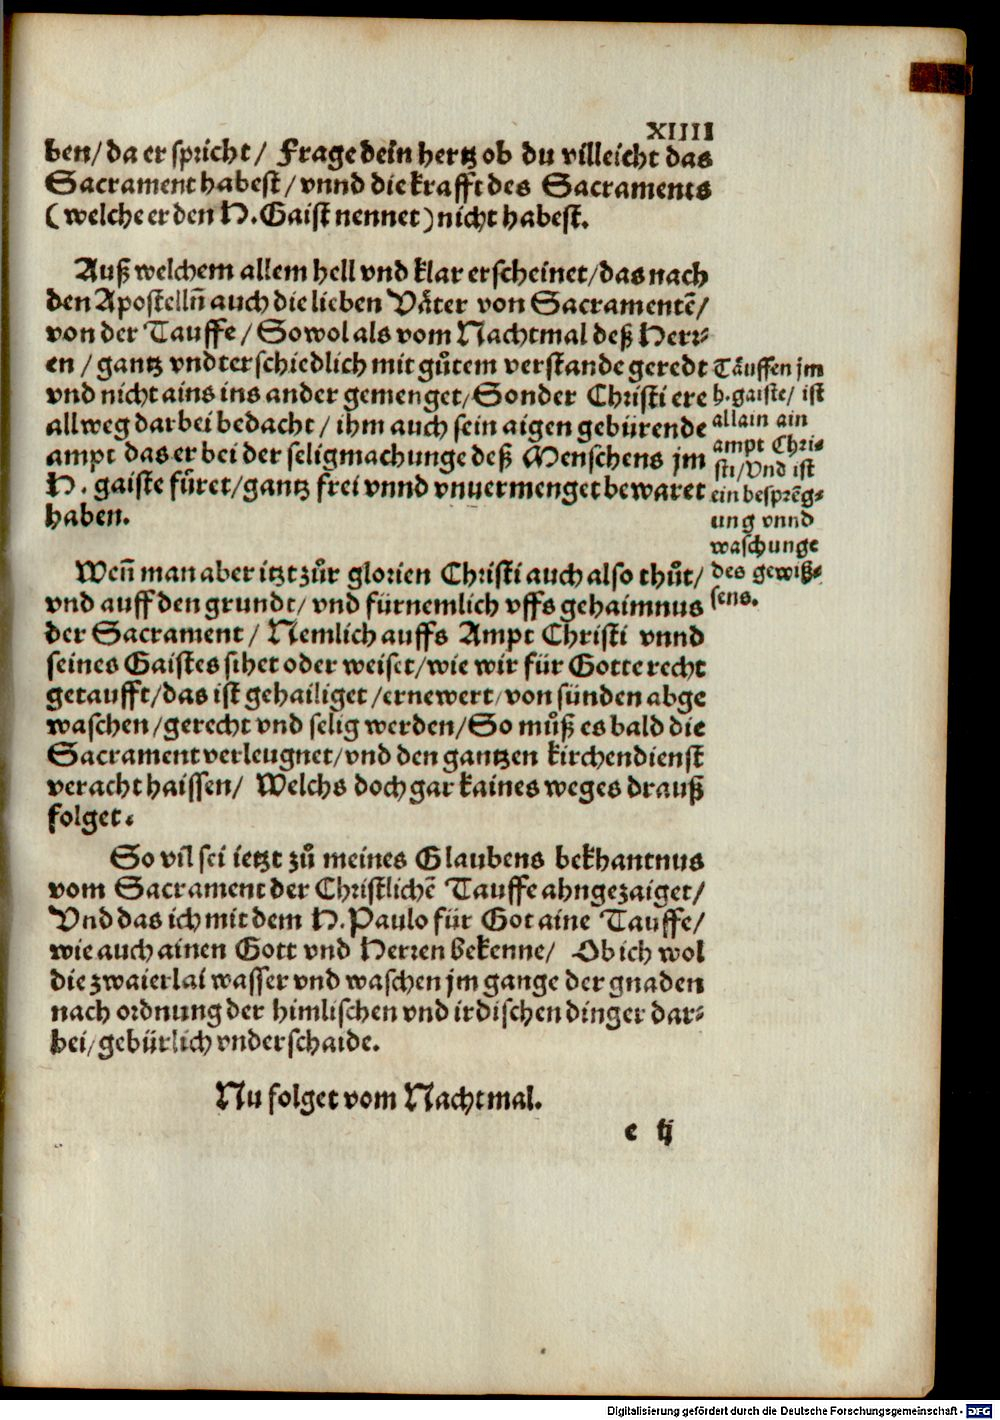 XIIII
ben/ da er spricht/ Frage dein hertz ob du villeicht das
Sacrament habest/ vnnd die krafft des Sacraments
(welche er den H. Gaist nennet) nicht habest.
Auß welchem allem hell vnd klar erscheinet/ das nach
den Apostelln̄ auch die lieben Väter von Sacramentē/
von der Tauffe/ Sowol als vom Nachtmal deß Herr⸗
en/ gantz vndterschiedlich mit gůtem verstande geredt
vnd nicht ains ins ander gemenget/ Sonder Christi ere
allweg darbei bedacht/ ihm auch sein aigen gebürende
ampt das er bei der seligmachunge deß Menschens jm
H. gaiste fůret/ gantz frei vnnd vnuermenget bewaret
haben.
Täuffen jm
h. gaiste/ ist
allain ain
ampt Chri⸗
sti/ Vnd ist
ein besprēg⸗
ung vnnd
waschunge
des gewiß⸗
sens.
Wen̄ man aber itzt zůr glorien Christi auch also thůt/
vnd auff den grundt/ vnd fürnemlich vffs gehaimnus
der Sacrament/ Nemlich auffs Ampt Christi vnnd
seines Gaistes sihet oder weiset/ wie wir für Gotte recht
getaufft/ das ist gehailiget/ ernewert/ von sünden abge
waschen/ gerecht vnd selig werden/ So můß es bald die
Sacrament verleugnet/ vnd den gantzen kirchendienst
veracht haissen/ Welchs doch gar kaines weges drauß
folget.
So vil sei ietzt zů meines Glaubens bekhantnus
vom Sacrament der Christlichē Tauffe ahngezaiget/
Vnd das ich mit dem H. Paulo für Got aine Tauffe/
wie auch ainen Gott vnd Herren bekenne/ Ob ich wol
die zwaierlai wasser vnd waschen jm gange der gnaden
nach ordnung der himlischen vnd irdischen dinger dar⸗
bei/ gebürlich vnderschaide.
Nu folget vom Nachtmal.
e ij
Digitalisierung gefördert durch die Deutsche Forschungsgemeinschaft - DFG